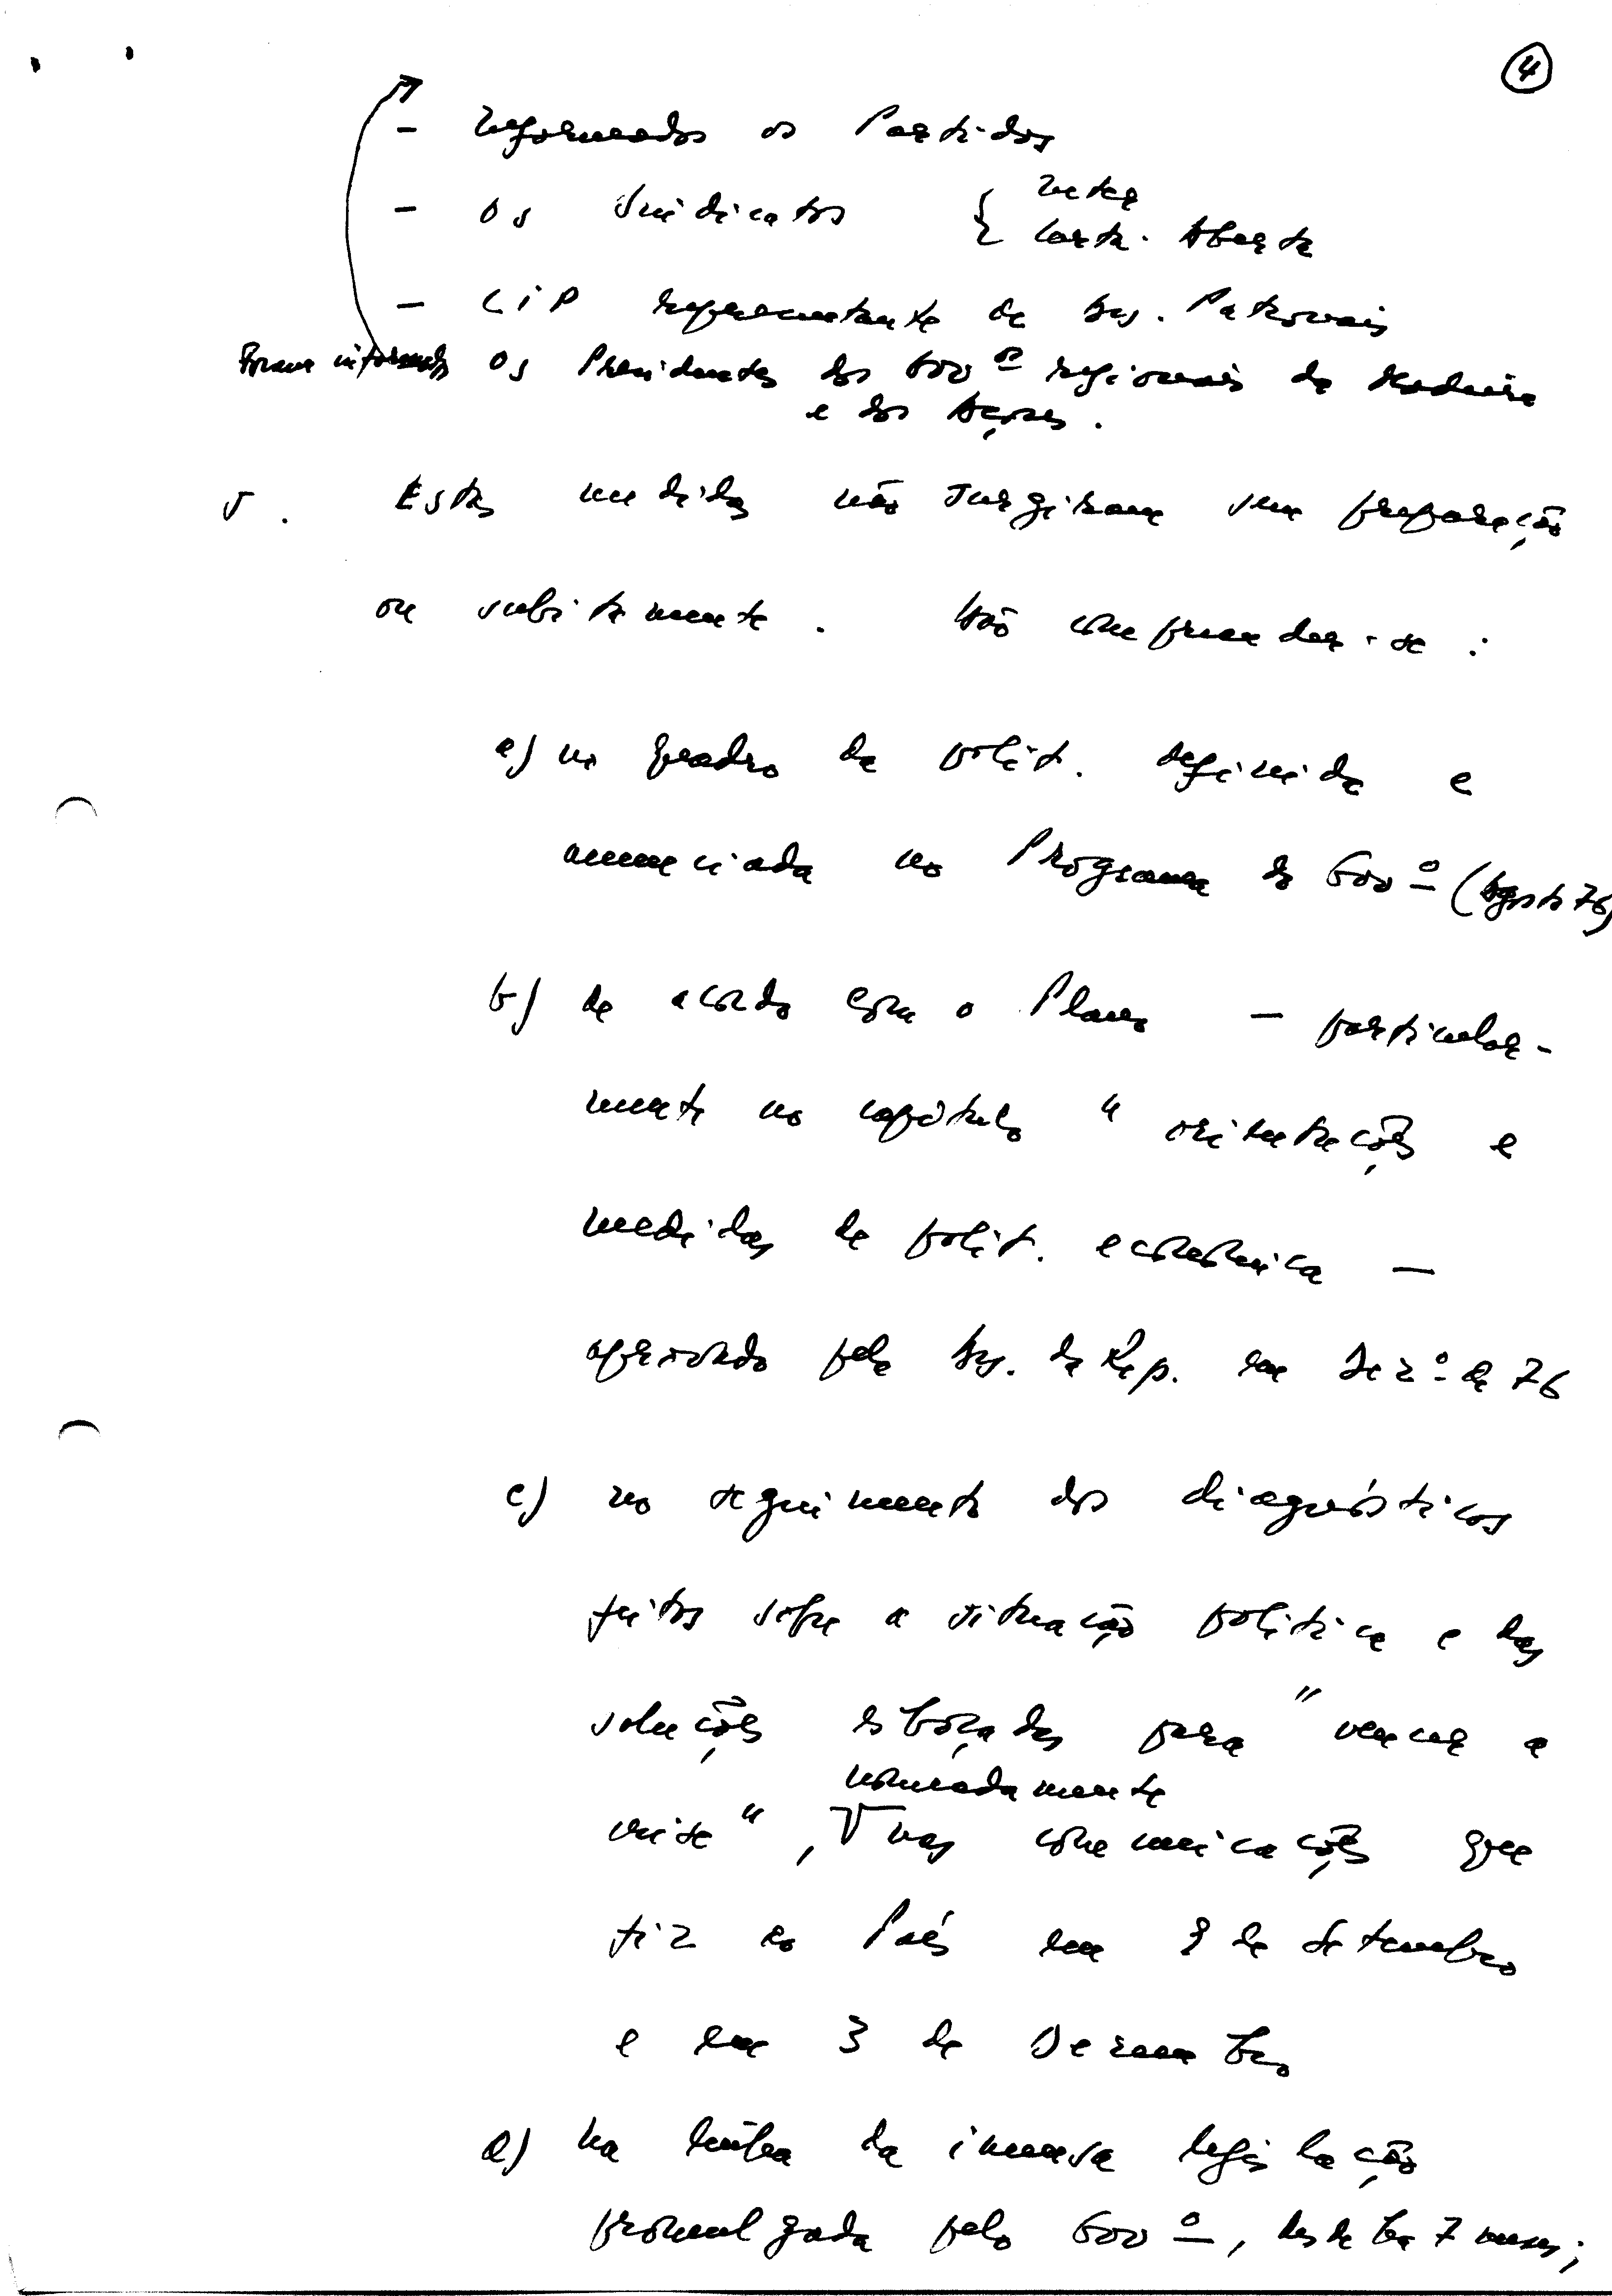 4
- Informados os Partidos
- Os Sindicatos { Inter
Carta. Aberta
- CIP representante de Ass. Patronais
Foram informados Os Presidentes dos Govº regionais da Madeira
e dos Açores.
5. Estas medidas não surgiram sem preparação
ou subitamente. Hão compreender-se:
a) no quadro da polít. definida e
anunciada no Programa do Govº (Agosto 76)
b) de acordo com o Plano - particular-
mente no capítulo " orientações e
medidas de polít. económica —
aprovado pela Ass. da Rep. em Dezº de 76
c) no seguimento dos diagnósticos
feitos sobre a situação política e das
soluções esboçadas para " vencer a
nomeadamente
crise ", nas comunicações que
fiz ao País em 9 de Setembro
e em 3 de Dezembro
d) na linha da imensa legislação
promulgada pelo Govº, desde há 7 meses;